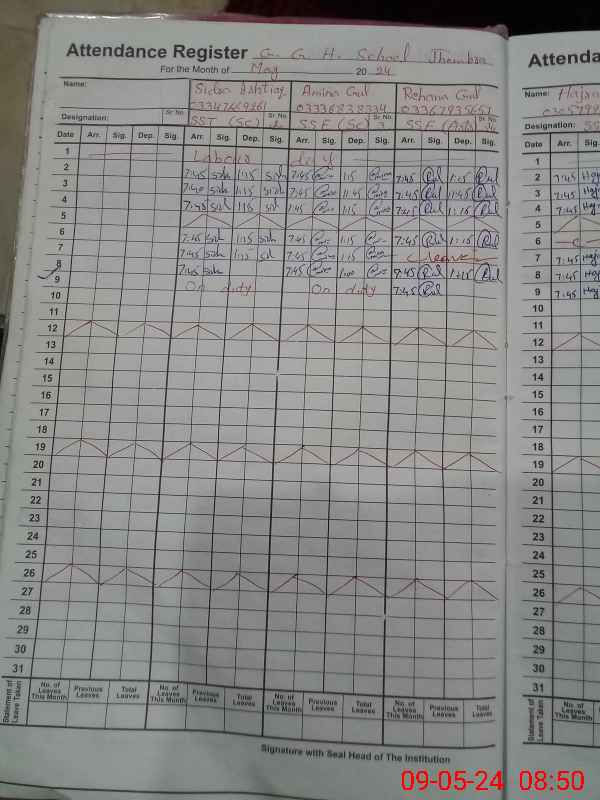 Attendance Register G. G. H. School Jhambra
For the Month of May 20 24
Name: Sidra Ishtiaq Amina Gul Rehana Gul
03336838334
Designation: SST (Sc) Sr. No. SSE (Sc) Sr. No. 3 SSE (Arts) Sr. No.
Date Arr. Sig. Dep. Sig. Arr. Sig. Dep. Sig. Arr. Sig. Dep. Sig. Arr. Sig. Dep. Sig.
1 Labour day
2 7:45 sidh 1:15 sidh 7:45 1:15 7:45 1:15
3 7:40 sidh 1:15 sidh 7:45 11:45 7:45 11:45
4 7:45 sidh 1:15 sidh 7:45 1:15 7:45 1:15
5
6 7:45 sidh 1:15 sidh 7:45 1:15 7:45 1:15
7 7:45 sidh 1:15 7:45 1:15 Leave
8 7:45 sidh 7:45 7:45 1:15
9 On duty On duty 7:45
10
11
12
13
14
15
16
17
18
19
20
21
22
23
24
25
26
27
28
29
30
31
Statement of Leave Taken
No. of Leaves This Month Previous Leaves Total Leaves No. of Leaves This Month Previous Leaves Total Leaves No. of Leaves This Month Previous Leaves Total Leaves No. of Leaves This Month Previous Leaves Total Leaves
Signature with Seal Head of The Institution
Attenda
For the
Name:
Designation: SS
Date Arr. Sig.
1
2 7:45
3 7:45
4 7:45
5
6
7 7:45
8 7:45
9 7:45
10
11
12
13
14
15
16
17
18
19
20
21
22
23
24
25
26
27
28
29
30
31
Statement of Leave Taken
No. of Leaves This Month
09-05-24 08:50